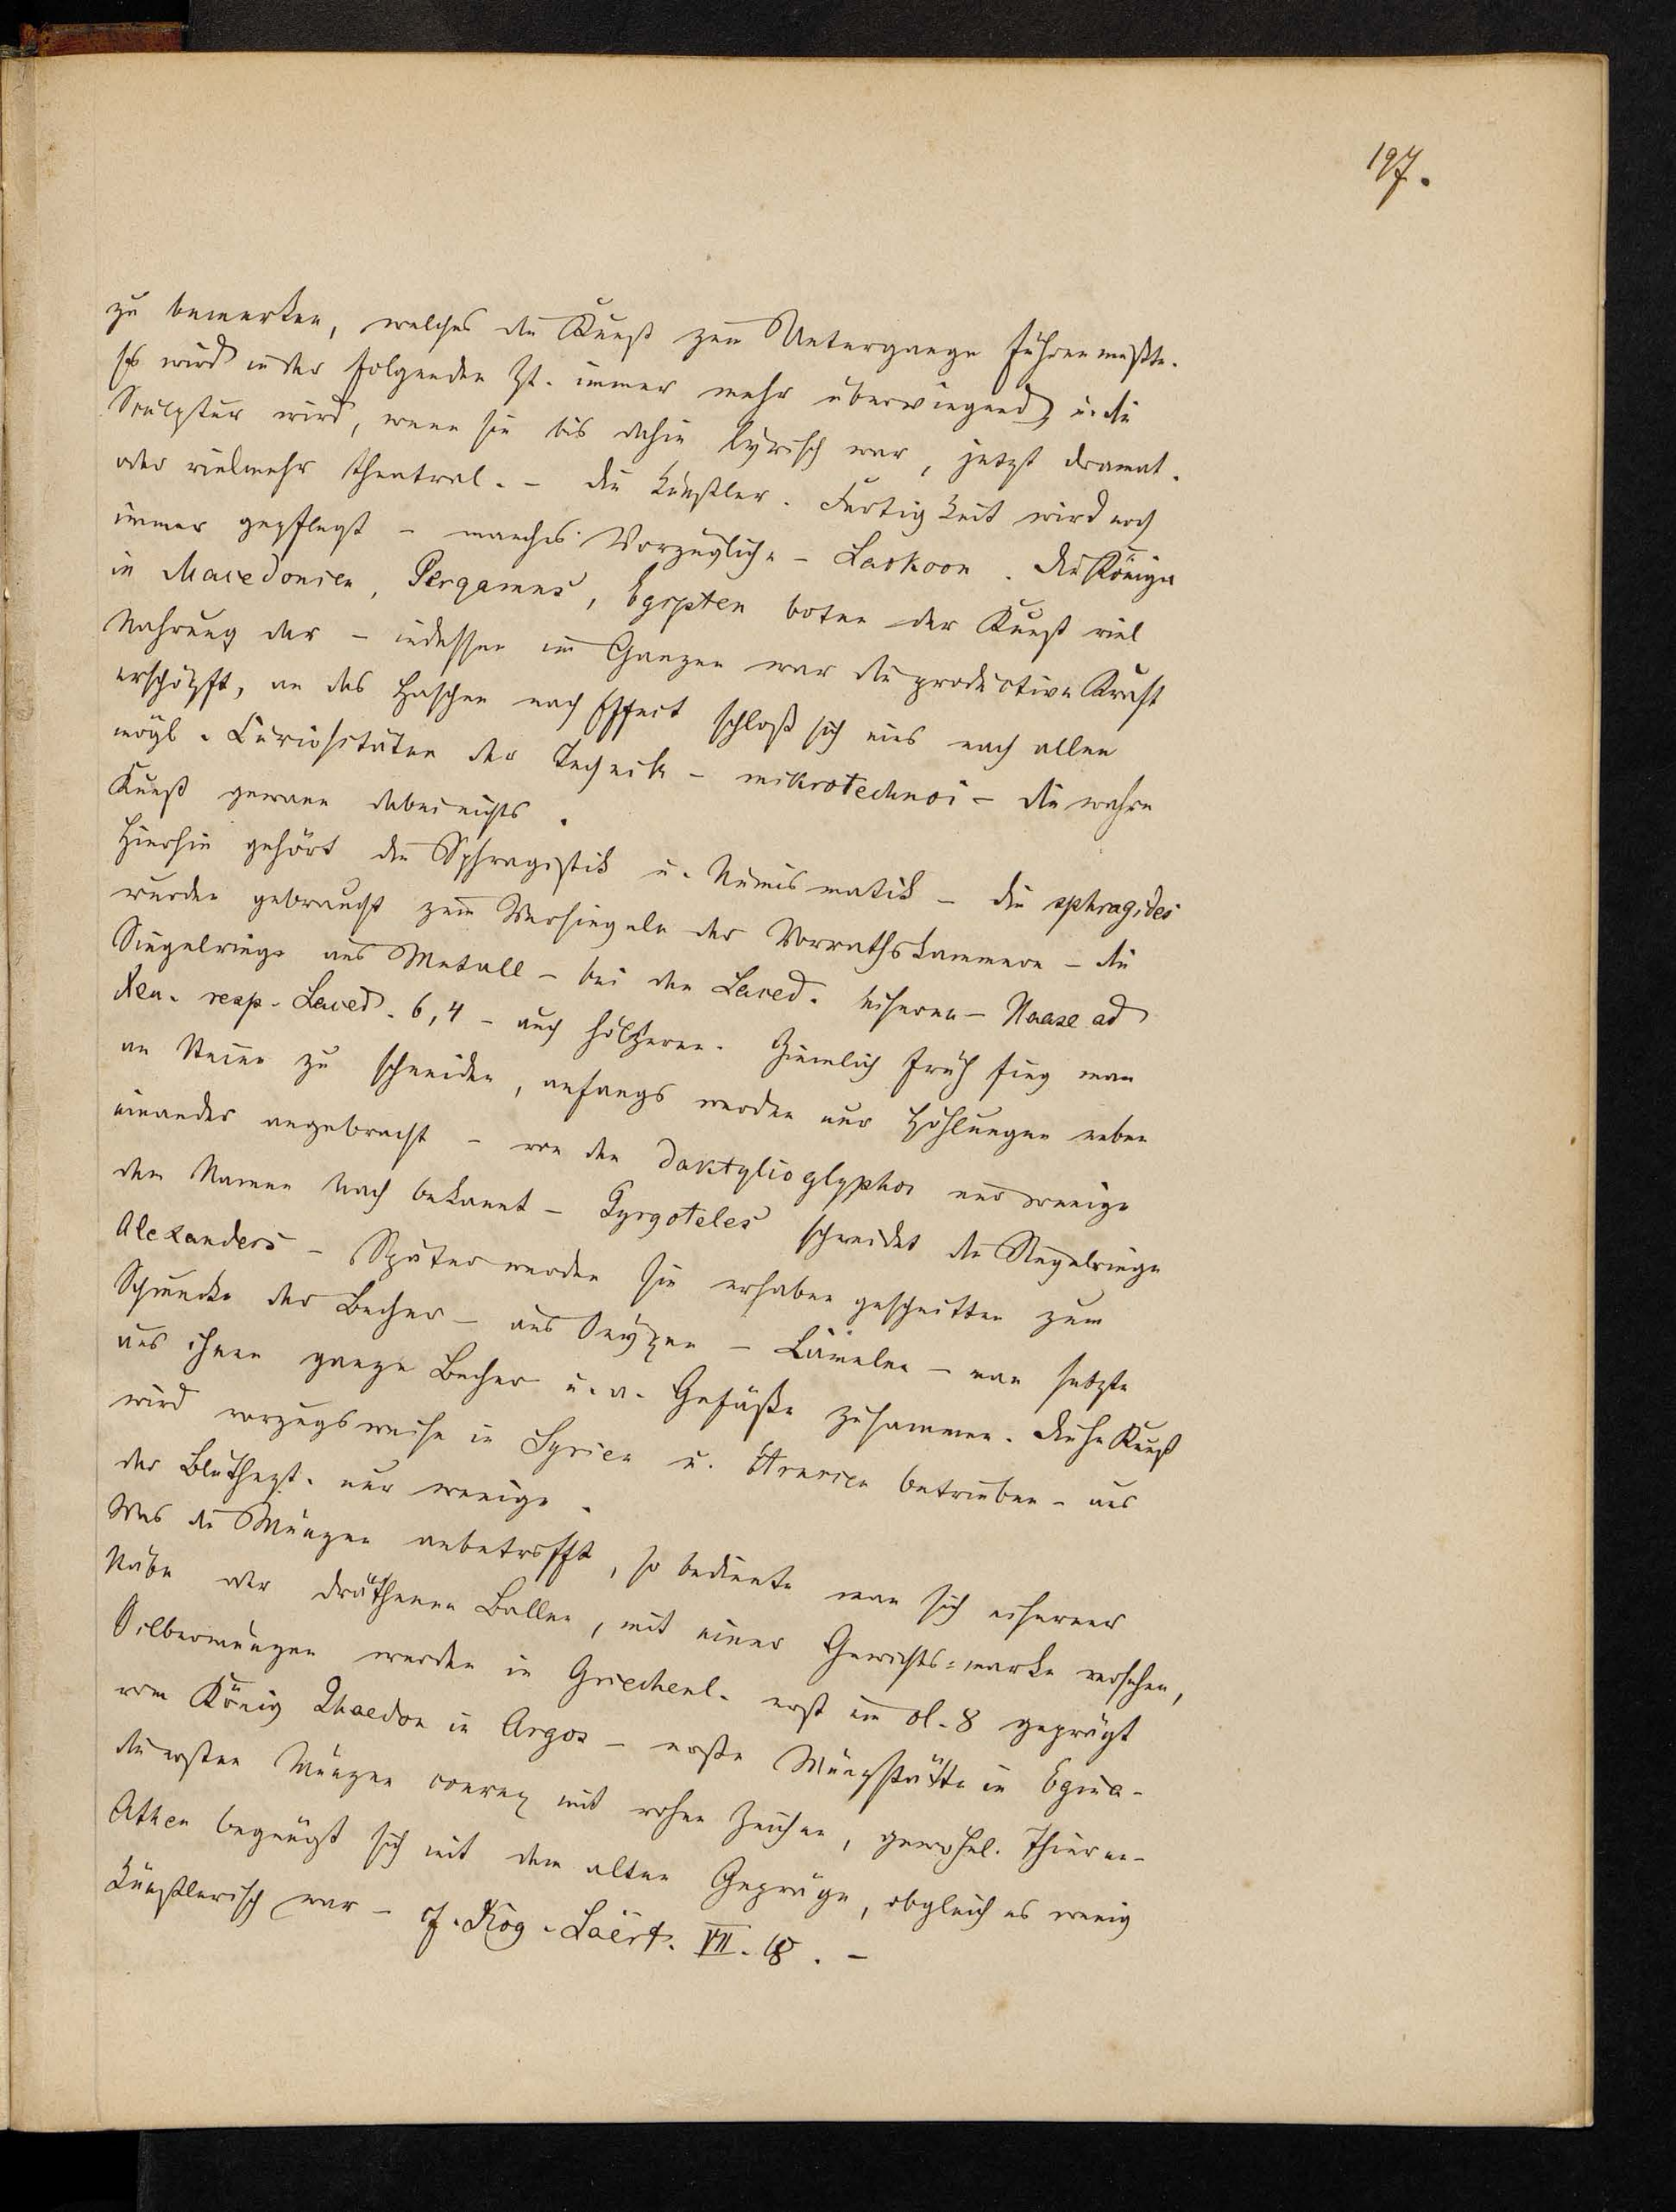 197.
zu bemerken, welches die Kunst zum Untergange führen mußte.
Es wird in der folgenden Zt. immer mehr überwiegend, u. die
Sculptur wird, wenn sie bis dahin lyrisch war, jetzt dramat.
oder vielmehr theatral. - die künstler. Fertigkeit wird noch
immer gepflegt - manches Vorzügliche - Laokoon. Die Könige
in Macedonien, Pergamus, Egypten boten der Kunst viel
Nahrung dar - indessen im Ganzen war die productive Kraft
erschöpft, an das Haschen nach Effect schloß sich eins nach allen
mögl. Curiositäten der Technik - mikrotechnoi - die wahre
Kunst gewann dabei nichts.
Hierhin gehört die Sphragistik u. Numismatik - die sphragides
wurden gebraucht zum Versiegeln der Vorrathskammern - die
Siegelringe aus Metall - bei den Laced. eisern - Haase ad
Xen. resp. Laced. 6, 4 - auch hölzerne. Ziemlich früh fing man
an Steine zu schneiden, anfangs werden nur Höhlungen neben
einander angebracht - von den Daktylioglyphoi nur wenige
dem Namen nach bekannt - Pyrgoteles schneidet die Siegelringe
Alexanders - Später werden sie erhaben geschnitten zum
Schmucke der Becher - aus Onyxen - Cameen - man setzte
aus ihnen ganze Becher u. a. Gefäße zusammen. Diese Kunst
wird vorzugsweise in Syrien u. Etrurien betrieben - aus
der Blüthezt. nur wenige.
Was die Münzen anbetrifft, so bediente man sich eiserner
Stäbe oder Ballen, mit einer Gewichts=marke versehen,
Silbermünzen werden in Griechenl. erst im Ol. 8 geprägt
vom König Phaedon in Argos - erste Münzstätte in Egina -
die ersten Münzen convex mit rohen Zeichen, gewöhnl. Thieren -
Athen begnügt sich mit dem alten Gepräge, obgleich es wenig
künstlerisch war - cf. Diog. Laërt. VII. 18. -